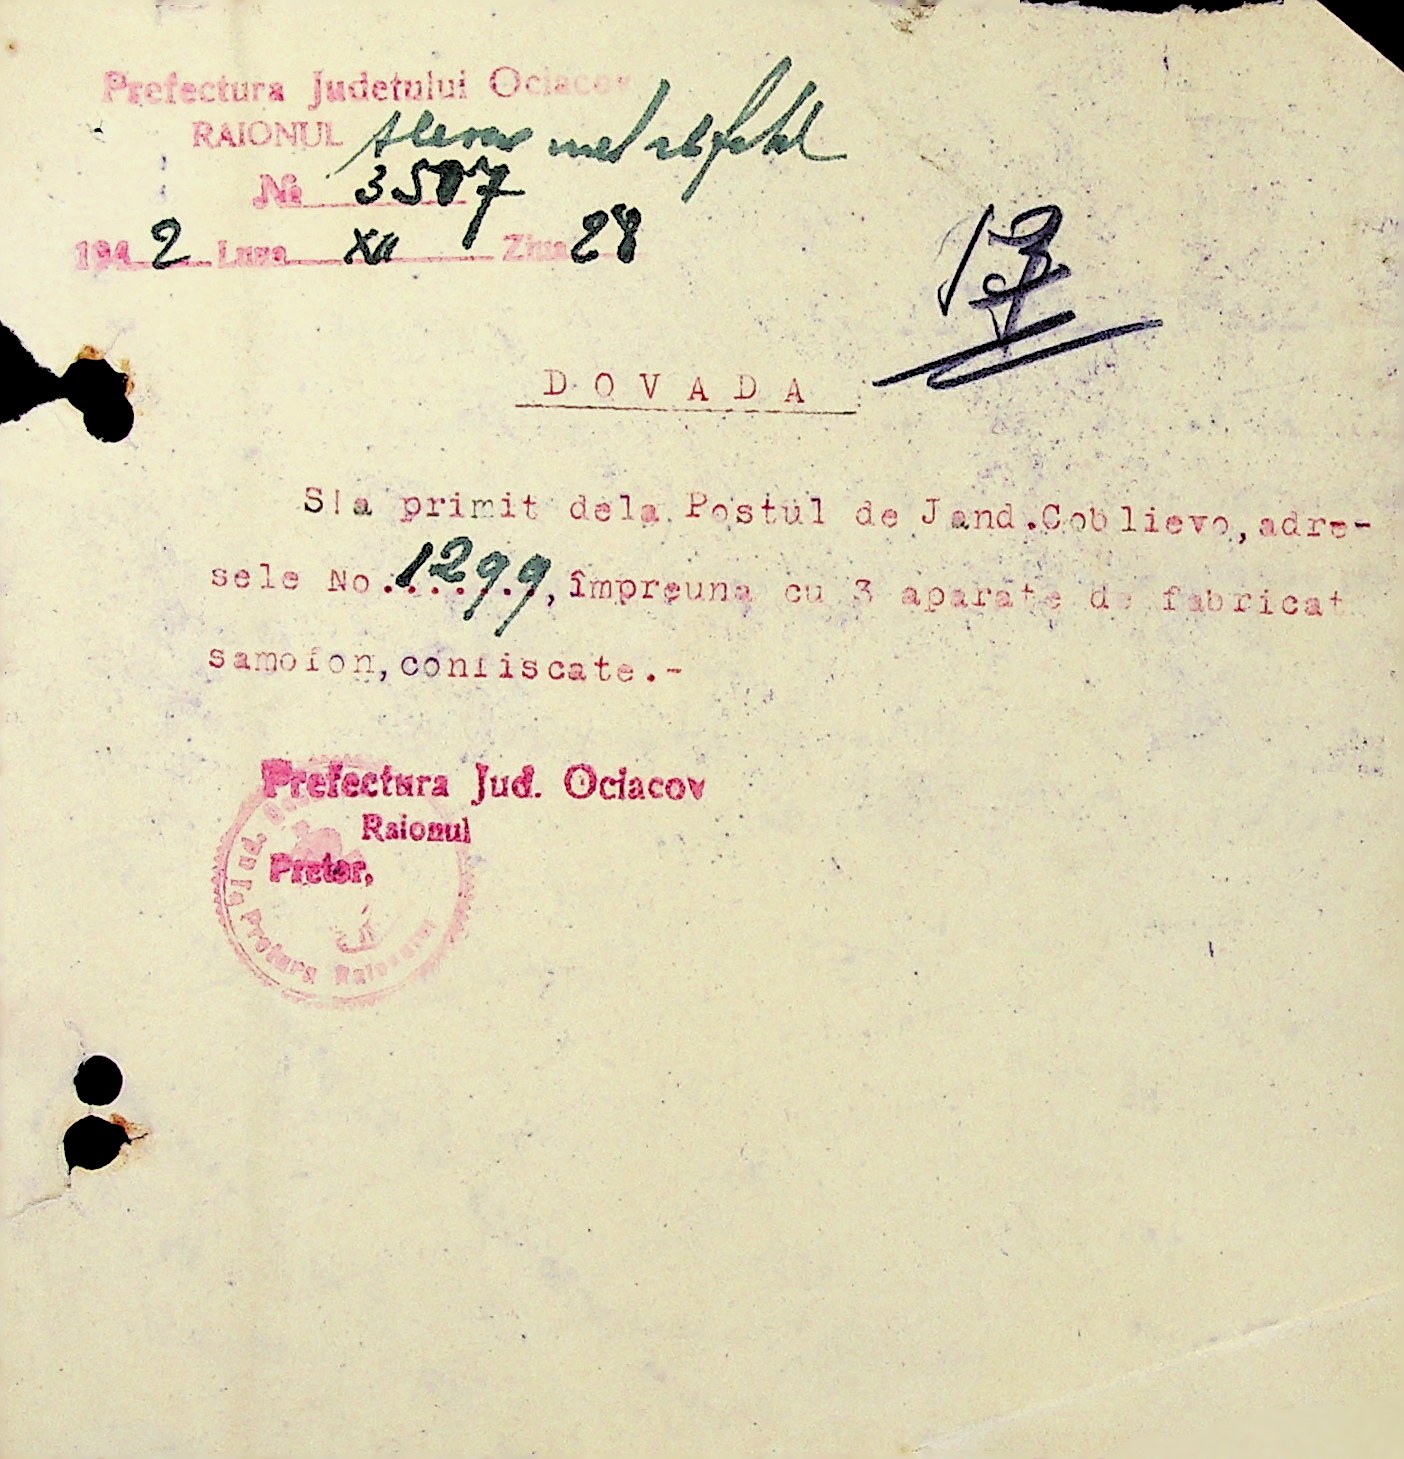 Prefectura Judetului Ociacov
RAIONUL
№ 3507
1942 Luna XII Ziua 28
17
DOVADA
S!a primit dela Postul de Jand.Coblievo,adre-
sele No.1299,împreuna cu 3 aparate de fabricat
samofon,confiscate.-
Prefectura Jud. Ociacov
Raionul
Pretor,
Jud.
Pretura